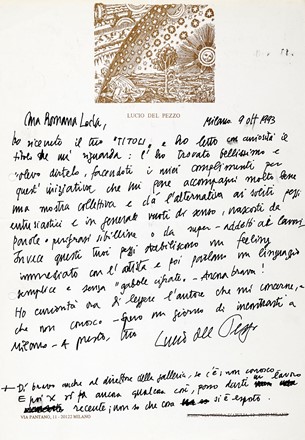 LUCIO DEL PEZZO
Milano 9 ott 1993
Cara Romana Loda,
ho ricevuto il tuo "TITOLI" e ho letto con curiosità il
titolo che mi riguarda: l'ho trovato bellissimo e
volevo dirtelo, facendoti i miei complimenti per
quest'iniziativa che mi pare accompagni molto bene
una mostra collettiva e dà l'alternativa ai soliti pezzi
entusiastici e in generale vuoti di senso, nascosti da
parole e perifrasi sibilline o da super-addetti ai lavori.
Invece questi tuoi pezzi stabiliscono un feeling
immediato con l'artista e poi parlano un linguaggio
semplice e senza "gabole cifrate". - Ancora brava!
Ho curiosità ora di leggere l'autore che mi concerne,
che non conosco - Spero un giorno di incontrarti a
Milano - A presto, tuo
Lucio del Pezzo
+ Di' bravo anche al direttore della galleria, se c'è; non conosco
E poi X vi fa ancora qualcosa così, posso darti un lavoro
recente; non so che cosa si è esposto.
VIA PANTANO, 11 - 20122 MILANO
20122 MILANO